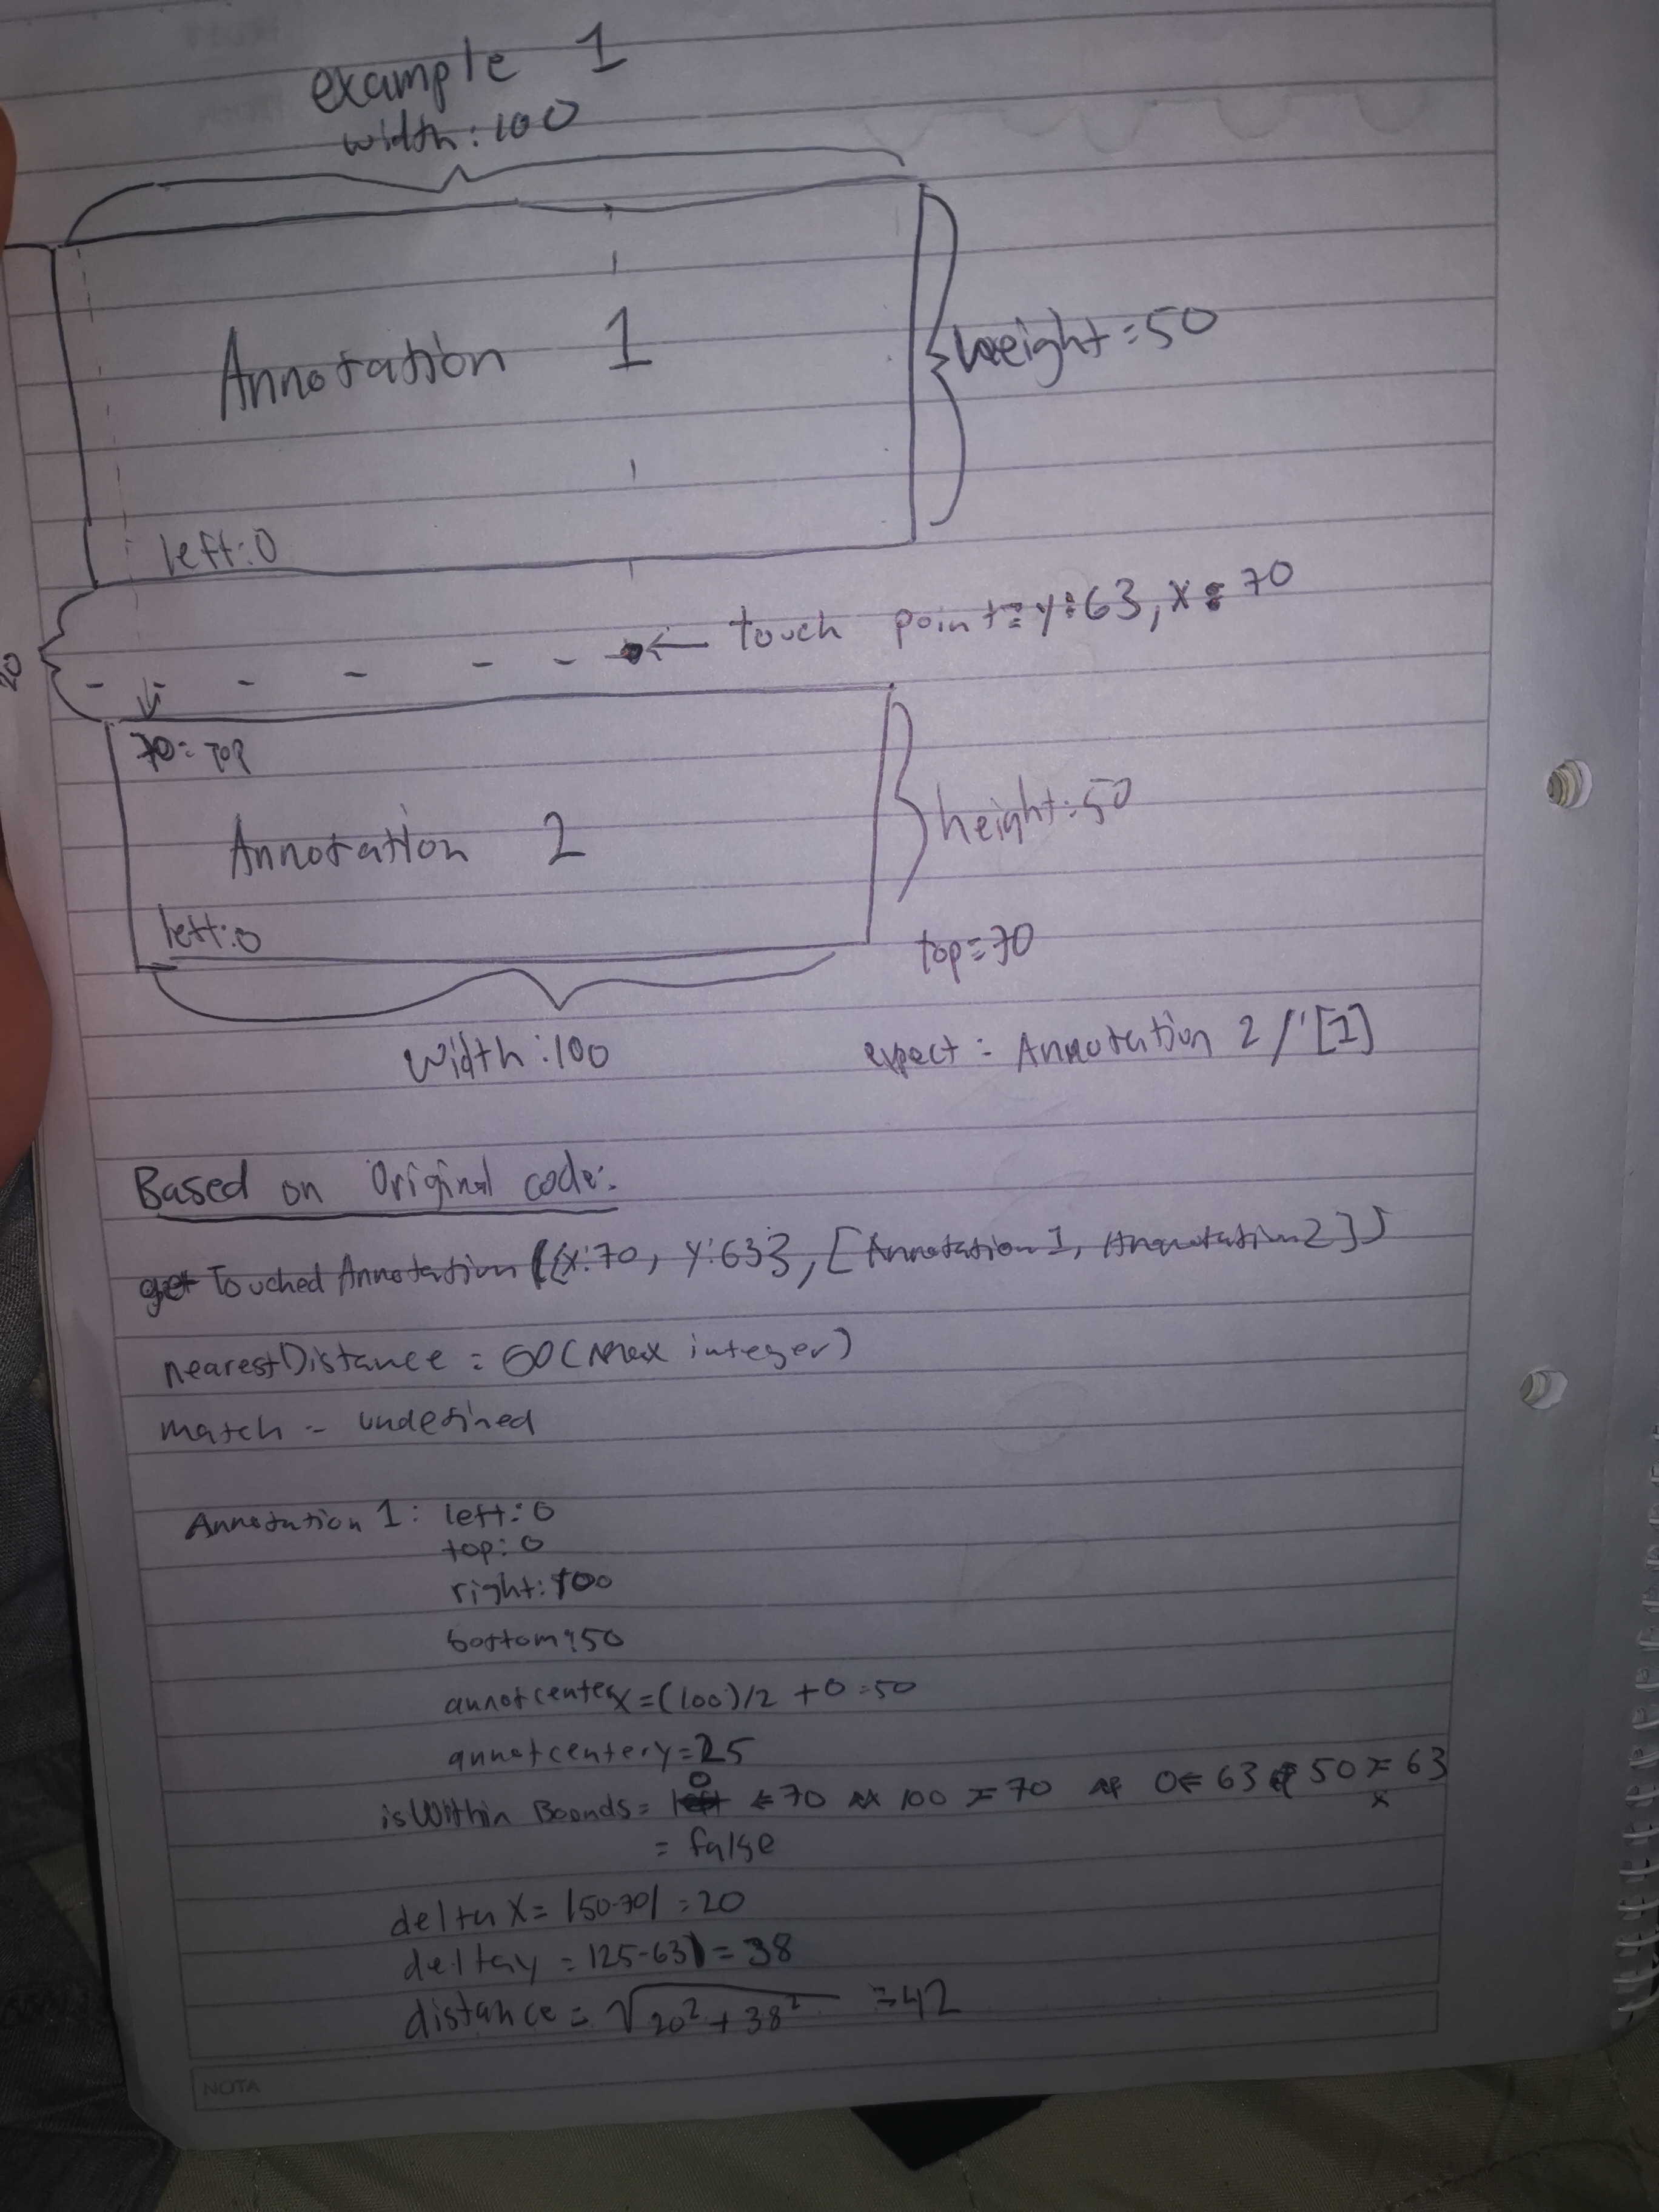 example 1
width:100
Annotation 1
height=50
left:0
20
touch point= y:63, x:70
70: TOP
Annotation 2
height:50
left:0
top=70
width:100
expect: Annotation 2 / [1]
Based on Original code:
get Touched Annotation ({x:70, y:63}, [Annotation 1, Annotation 2])
nearestDistance = ∞ (Max integer)
match = undefined
Annotation 1: left:0
top:0
right:100
bottom:50
annotcenterx=(100)/2 +0=50
annotcentery=25
isWithin Bounds= 0 ≤ 70 && 100 ≥ 70 && 0≤ 63 && 50 ≥ 63
x
= false
delta X= |50-70| =20
deltay = |25-63| = 38
distance = √20²+38² =42
NOTA